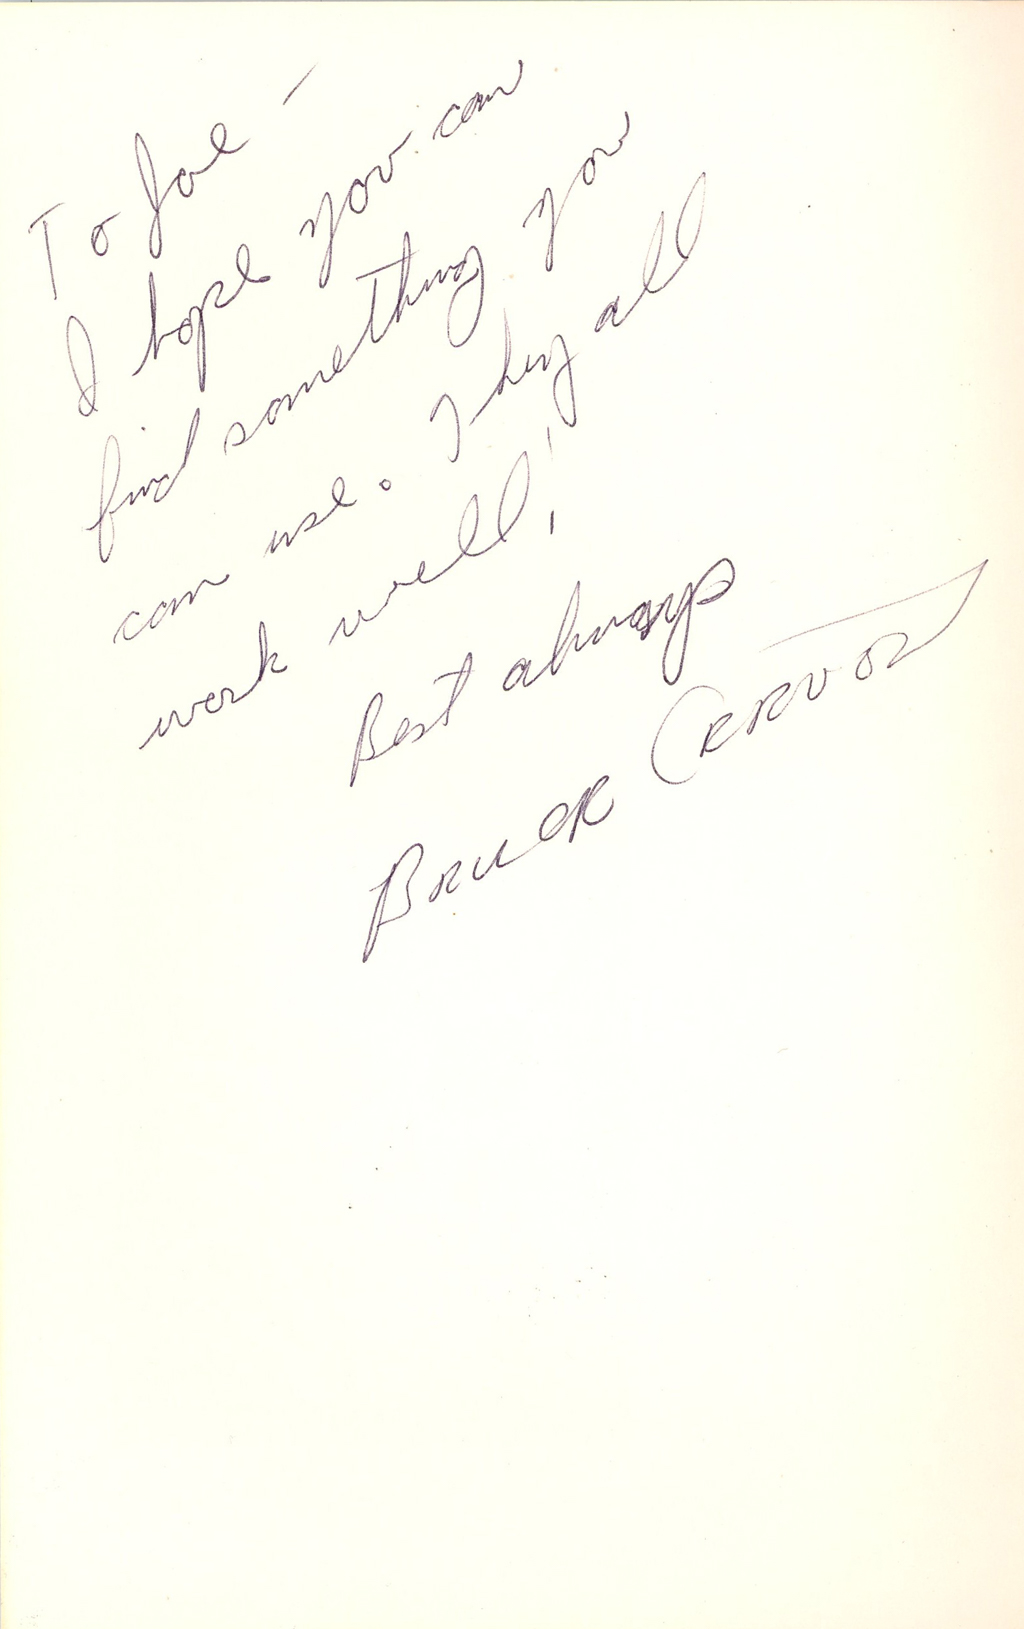 To Joe —
I hope you can
find something you
can use. They all
work well!
Best always
Bruce Cervon